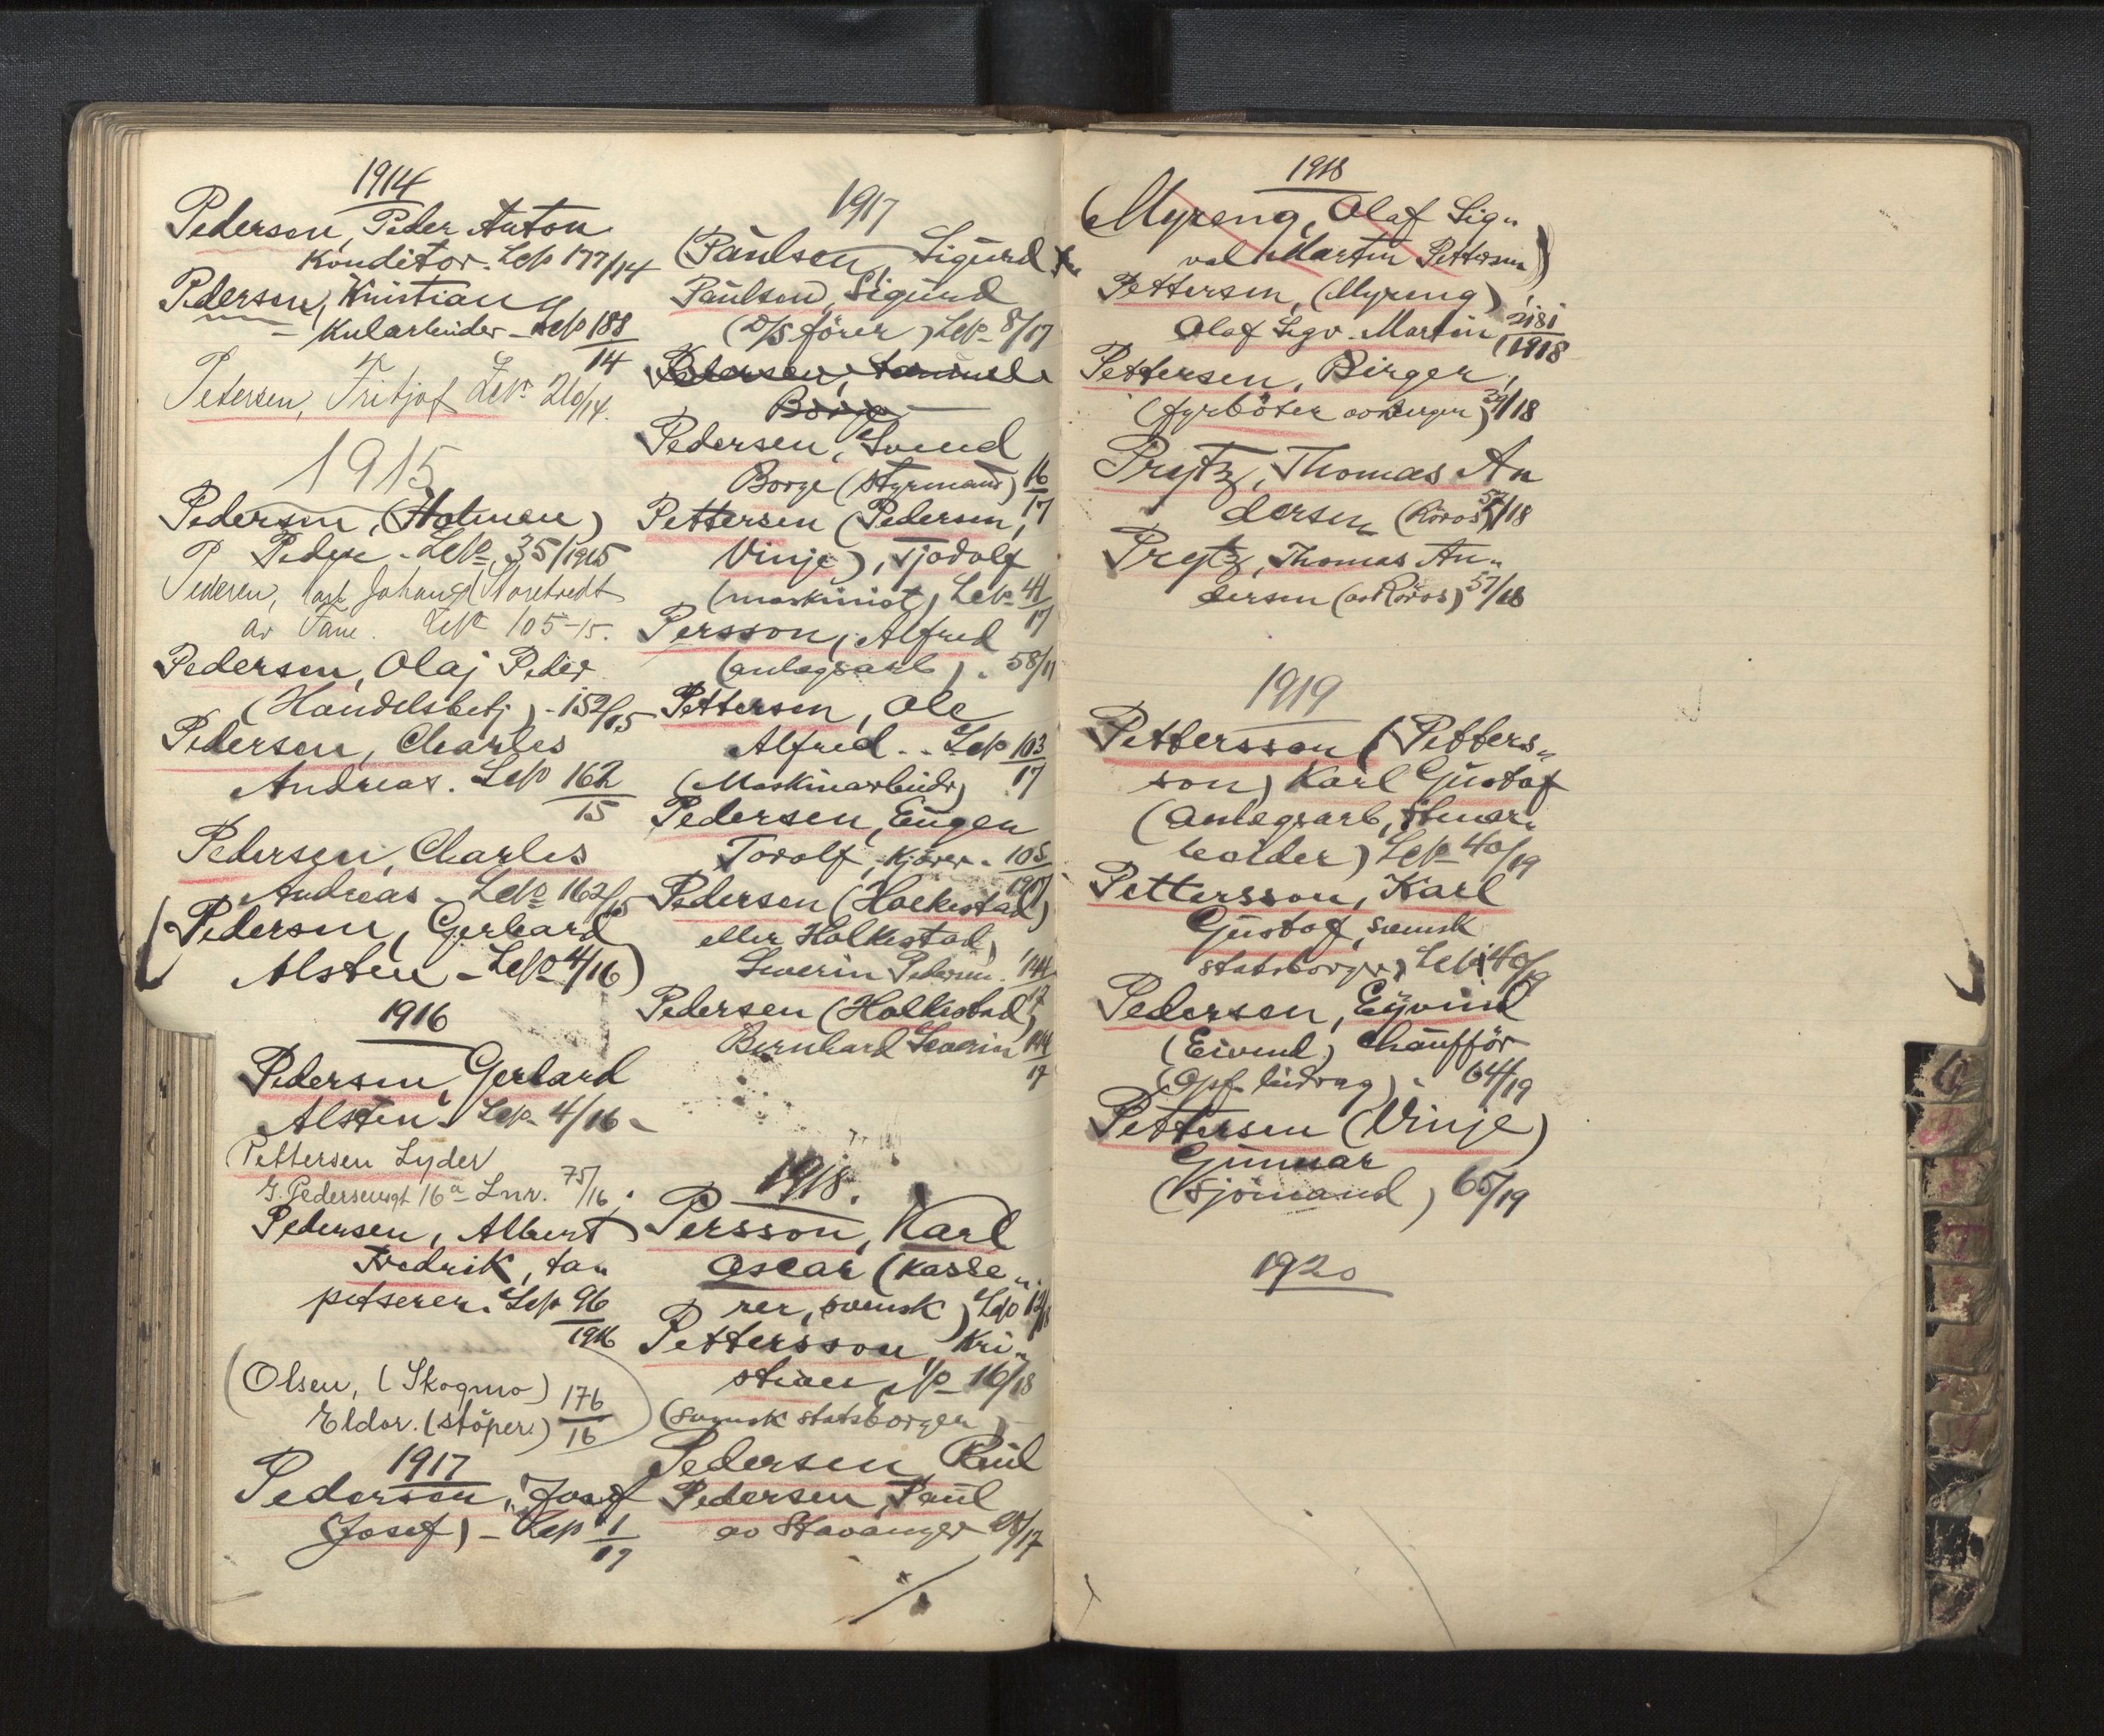 1914
Pedersen, Peder Anton
Konditor. Lep 177/14
Pedersen, Kristian
Lep 188/14
Petersen, Fritjof Lep 210/14.
1915
Pedersen, (Holmen)
Peder - Lep 35/1915
Pedersen,
av Fane. Lep 105-15.
Pedersen, Olaj Peder
(Handelsbetj) - 152/15
Pedersen, Charles
Andreas. Lep 162/15
Pedersen, Charles
Andreas - Lep 162/15
(Pedersen, Gerhard
Alsten - Lep 4/16)
1916
Pedersen, Gerhard
Alsten. Lep. 4/16 -
Pettersen Lyder
16a Lnr. 75/16
Pedersen, Albert
Fredrik, ta„
petserer. Lep 96/1916
(Olsen, (Skogmo)
Eldor. (støper.) 176/16
1917
Pedersen, Josef
(Josef) - Lep 1/17
1917
(Paulsen, Sigurd
Paulsen, Sigurd
(D/S förer) Lep. 8/17
Pedersen,
Borge
Pedersen, Svend
Borge (styrmand) 16/17
Pettersen (Pedersen,
Vinje), Tjodolf
(maskinist) Lep. 41/17
Persson, Alfred
(anlegsarb). 58/17
Pettersen, Ole
Alfred. . Lep 103/17
(Maskinarbeidr)
Pedersen, Eugen
Torolf, Kjører. 105/1917
Pedersen (Holkestad)
eller Holkestad,
Severin Pedersen. 144/17
Pedersen (Holkestad)
Bernhard Severin 144/17
1918.
Persson, Karl
Oscar (kasse„
rer, svensk) Lep 12/18
Pettersson, Kri„
stian, 16/18
(svensk statsborger)
Pedersen, Paul
Pedersen, Paul
av Stavanger 28/17
1918
(Myreng, Olaf Sig„
val Martin Pettersen)
Pettersen, (Myreng),
Olaf Sigv. Martin, /1918
Pettersen, Birger,
(fyrböter av Bergen) /18
Prytz, Thomas An
dersen (Röros) 57/18
Prytz, Thomas An„
dersen (av Röros) 57/18
1919
Pettersson (Petters„
son) Karl Gustaf
(Anlegsarb, stuer„
Lep 40/19
Pettersson, Karl
Gustaf, svensk
statsborger, Lep 40/19
Pedersen, Eyvind
(Eivind) Chaufför
(Opf. bidrag). 64/19
Pettersen (Vinje)
Gunnar
(sjömand) 65/19
1920